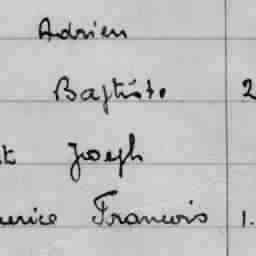 Adrien
Baptiste 2
t Joseph
urice Francois 1.